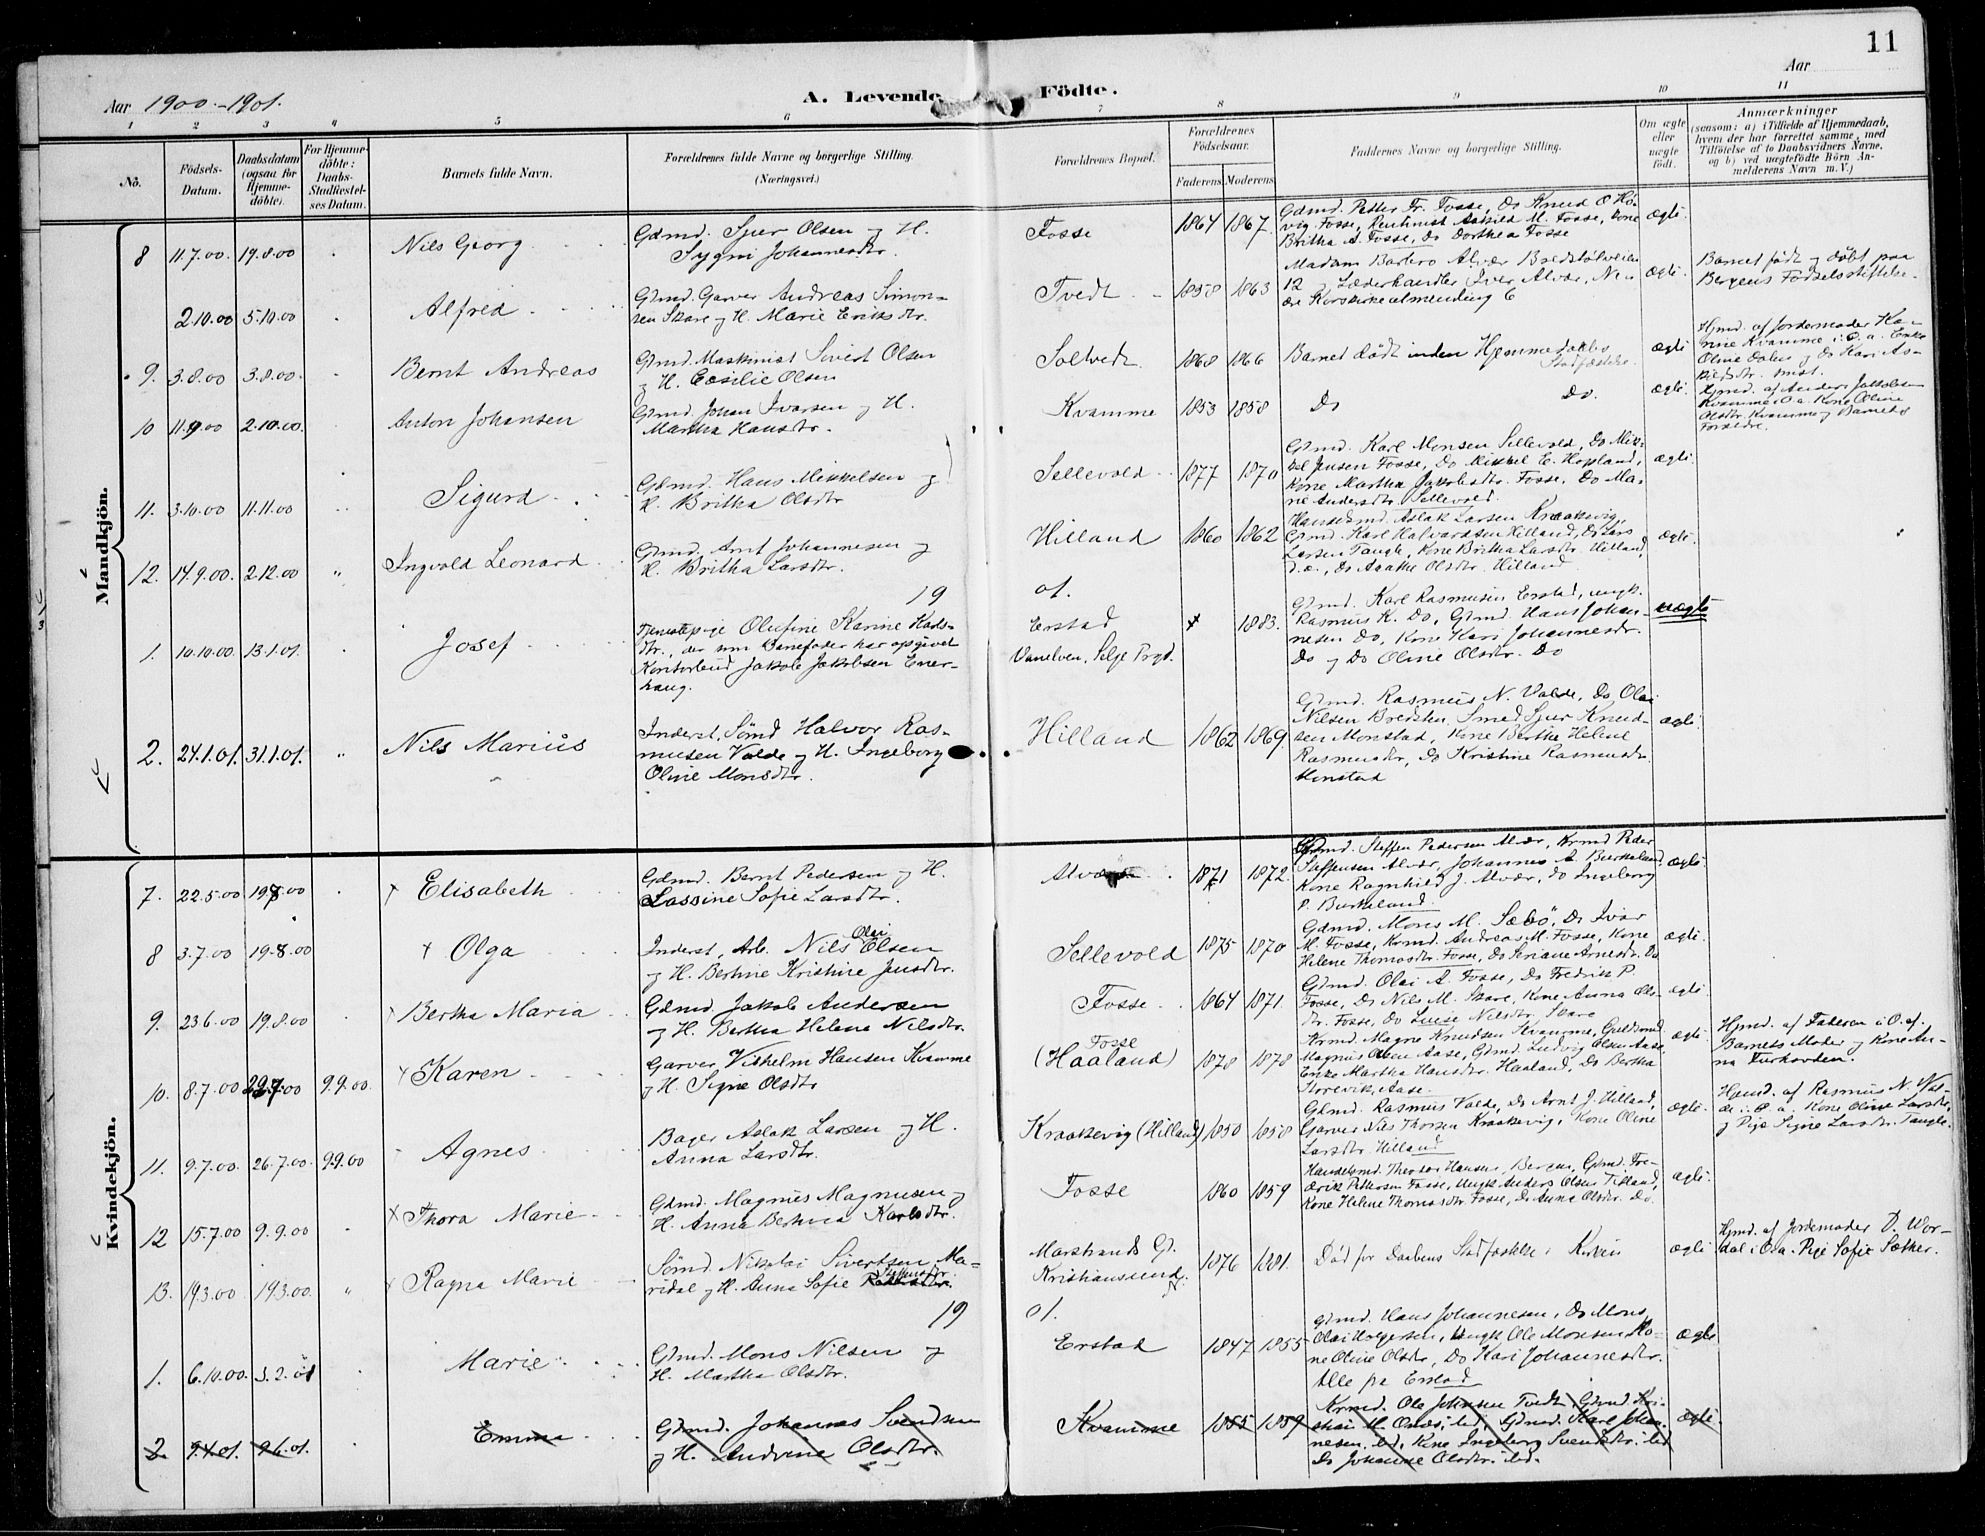 11
Aar 1900-1901.
A. Levende Födte.
Aar
1 2 3 4 5 6 7 8 9 10 11
No.
Födsels-Datum.
Daabsdatum (ogsaa for Hjemme-döbte).
For Hjemme-döbte: Daabs-Stadfæstel-ses Datum.
Barnets fulde Navn.
Forældrenes fulde Navne og borgerlige Stilling.
(Næringsvei.)
Forældrenes Bopæl.
Forældrenes Födselsaar.
Faderens Moderens
Faddernes Navne og borgerlige Stilling.
Om ægte eller uægte født.
Anmærkninger
(saasom: a) i Tilfælde af Hjemmedaab, hvem der har forrettet samme, med Tilföielse af to Daabsvidners Navne, og b) ved uægtefödte Börn An-melderens Navn m. V.)
Mandkjön.
8 11.7.00. 19.8.00 Nils Georg
Gdmd. Sjur Olsen og H.
Sygni Johannesdtr.
Fosse 1864 1867.
Gdmd. Petter Fr. Fosse, Do Knud O Hö-
vig Fosse, Rentenist Askild M. Fosse, Kone
Britha A. Fosse, Do Dorthea Fosse
ægte.
2.10.00 5.10.00 Alfred
Gdmd. Garver Andreas Simon-
sen Skare og H. Marie Eriksdtr.
Tvedt 1858 1863
Madam Barbro Alvær
12, Læderhandler Iver Alvær, Ne-
dre Korskirkealmending 6
ægte.
Barnet født og døbt paa
Bergens Fødselsstiftelse.
9. 3.8.00 3.8.00. Bernt Andreas
Gdmd. Maskinist Sivert Olsen
og H. Cæsilie Olsen
Soltvedt 1868 1866
Barnet dødt inden Hjemmedaabs
Stadfæstelse
ægte
Hjmd. af Jordemoder Ka-
rine Kvamme i O. a. Enke
Oline Dalen og Do Kari As-
kildsdtr. 
10 11.9.00 2.10.00. Anton Johansen
Gdmd. Johan Ivarsen og H.
Martha Hansdtr.
Kvamme 1853 1858 Do Do. ægte.
Hjmd. af Anders Jakobsen
Kvamme i O. a. Kone Oline
Olsdtr. Kvamme og Barnets
Forældre.
11. 3.10.00 11.11.00 Sigurd
Gdmd. Hans Mikkelsen og
H. Britha Olsdtr
Sellevold 1877 1870
Gdmd. Karl Monsen Sellevold, Do Mik-
kel Jensen Fosse, Do Mikkel E. Hopland,
Kone Martha Jakobsdtr. Fosse, Do Ma-
rie Andersdtr. Sellevold.
ægte.
12. 14.9.00. 2.12.00 " Ingvold Leonard
Gdmd. Arnt Johannesen og
H. Britha Larsdtr.
Hilland 1860 1862
Handelsmd. Aslak Larsen Kraakevig,
Gdmd. Karl Halvardsen Hilland, Do Lars
Larsen Tangle, Kone Britha Larsdtr. Hilland,
d.æ., Do Aaathe Olsdtr. Hilland
ægte.
19 01.
1. 10.10.00. 13.1.01. Josef
Tjenestepige Olufine Karine Mads-
dtr., der som Barnefader har opgivet
Kontorbud Jakob Jakobsen Ener-
haug.
Erstad
Vanelven, Selje Prgd.
1883.
Gdmd. Karl Rasmusen Erstad, ungk.
Rasmus K. Do, Gdmd. Hans Johan-
nesen Do, Kone Kari Johannesdtr.
Do og Do Oline Olsdtr. Do
uægte
2. 24.1.01. 31.1.01. " Nils Marius
Inderst, Sömd Halvor Ras-
musen Valde og H. Ingeborg
Oline Monsdtr.
Hilland 1862 1869
Gdmd. Rasmus N. Valde, Do Olai
Nilsen Bredsten, Smed Sjur Knud-
sen Monstad, Kone Berthe Helene
Rasmusdtr, Do Kristine Rasmusdtr
Monstad
ægte.
Kvindekjön.
7. 22.5.00 19.8.00 Elisabeth
Gdmd. Bernt Pedersen og H.
Lassine Sofie Larsdtr.
Alvær 1871 1872.
Gdmd. Steffen Pedersen Alvær, Krmd Peder
Steffensen Alvær, Johannes A. Burkeland,
Kone Ragnhild J. Alvær, Do Ingeborg
P. Burkeland.
ægte.
8 3.7.00 19.8.00 Olga
Inderst, Arb. Nils Olai Olsen
og H. Bertine Kristine Jensdtr.
Sellevold 1875 1870
Gdmd. Mons M. Sæbö, Do Ivar
M. Fosse, Krmd. Andreas M. Fosse, Kone
Helene Thomasdtr. Fosse, Do Seriane Arnesdtr. Do
ægte.
9. 23.6.00 19.8.00 Bertha Maria
Gdmd. Jakob Andersen
og H. Bertha Helena Nilsdtr.
Fosse 1864 1871.
Gdmd. Olai A. Fosse, Do Fredrik P.
Fosse, Do Nils M. Skare, Kone Anna Ols-
dtr. Fosse, Do Luise Nilsdtr. Skare
ægte.
10. 8.7.00 22.7.00 9.9.00. Karen
Garver Vilhelm Hansen Kvamme
og H. Signe Olsdtr
Fosse
(Haaland) 1878 1878
Krmd. Magne Knudsen Kvamme, Guldsmd
Magnus Olsen Aase, Gdmd. Ludvig Olsen Aase,
Enke Martha Hansdtr. Haaland, Do Bertha
Storevik, Aase.
ægte.
Hjmd. af Faderen i O. af.
Barnets Moder og Kone An-
na Furhovden.
11. 9.7.00. 26.7.00 9.9.00 Agnes
Bager Aslak Larsen og H.
Anna Larsdtr.
Kraakevig (Hilland) 1850 1858
Gdmd. Rasmus Valde, Do Arnt J. Hilland,
Garver Nils Thorsen Kraakevig, Kone Oline
Larsdtr Hilland
ægte.
Hjmd. af Rasmus N. Val-
de i O. a. Kone Oline Larsdtr,
og Pige Signe Larsdtr. Tangle.
12 15.7.00 9.9.00 Thora Marie
Gdmd. Magnus Magnusen og
H. Anna Bertina Karlsdtr.
Fosse 1860 1859
Handelsmd. Theodor Hansen, Bergen, Gdmd. Fre-
drik Pettersen Fosse, Ungk Anders Olsen Titland,
Kone Helene Thomasdtr. Fosse, Do Anna Olsdtr. Do.
ægte.
13. 19.3.00 19.3.00. " Ragna Marie
Sömd. Nikolai Sivertsen Ma-
ridal og H. Anna Sofie
Marstrands Gd.
Kristianssund. 1876 1881.
Död for Daabens Stadfæstelse i Kirken
ægte
Hjmd. af Jordemoder D. Wor-
dal i O. a. Pige Sofie Sæther.
19 01.
1. 6.10.00. 3.2.01 Marie
Gdmd. Mons Nilsen og
H. Martha Olsdtr.
Erstad 1847 1855
Gdmd. Hans Johannesen, Do Mons
Olai Holgersen, Ungk Ole Monsen Ko-
ne Oline Olsdtr, Do Kari Johannesdtr.
Alle fra Erstad
ægte
2 9.4.01. 9.6.01. Emma
Gdmd. Johannes Svendsen
og H. Andrine Olsdtr.
Kvamme 1855 1859
Krmd. Ole Johnsen Tvedt, Gdmd. Kri-
stian M. Ones, ibd, Gdmd. Karl Johan-
nesen ibd, Kone Ingeborg Svensdtr. ibd
Do Johanne Olsdtr. ibd.
ægte